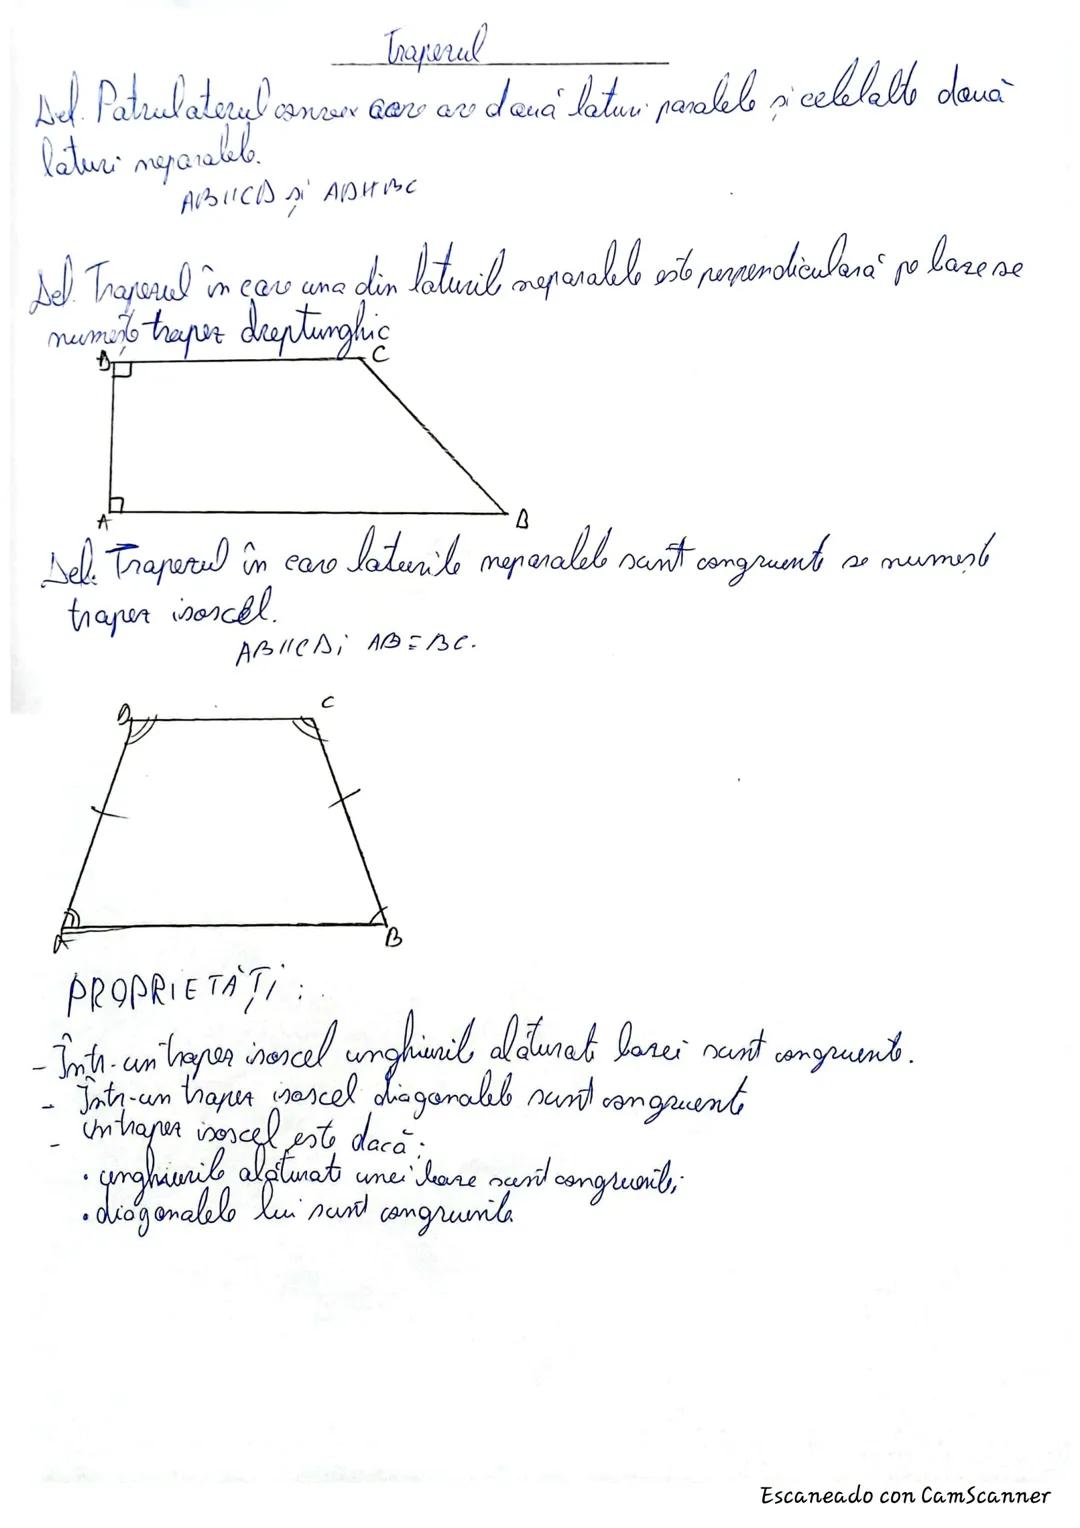 Trapezul
Def. Patrulaterul convex care are două laturi paralele și celelalte două
laturi neparalele.
AB||CD și AD∦BC
Def. Trapezul în care una din laturile neparalele este perpendiculară pe baze se
numește trapez dreptunghic
D
C
A
B
Def. Trapezul în care laturile neparalele sunt congruente se numește
trapez isoscel.
AB||CD; AB≡BC.
D
C
A
B
PROPRIETĂȚI:
- Într-un trapez isoscel unghiurile alăturate bazei sunt congruente.
- Într-un trapez isoscel diagonalele sunt congruente
- Un trapez isoscel este dacă:
• unghiurile alăturate unei baze sunt congruente;
• diagonalele lui sunt congruente
Escaneado con CamScanner